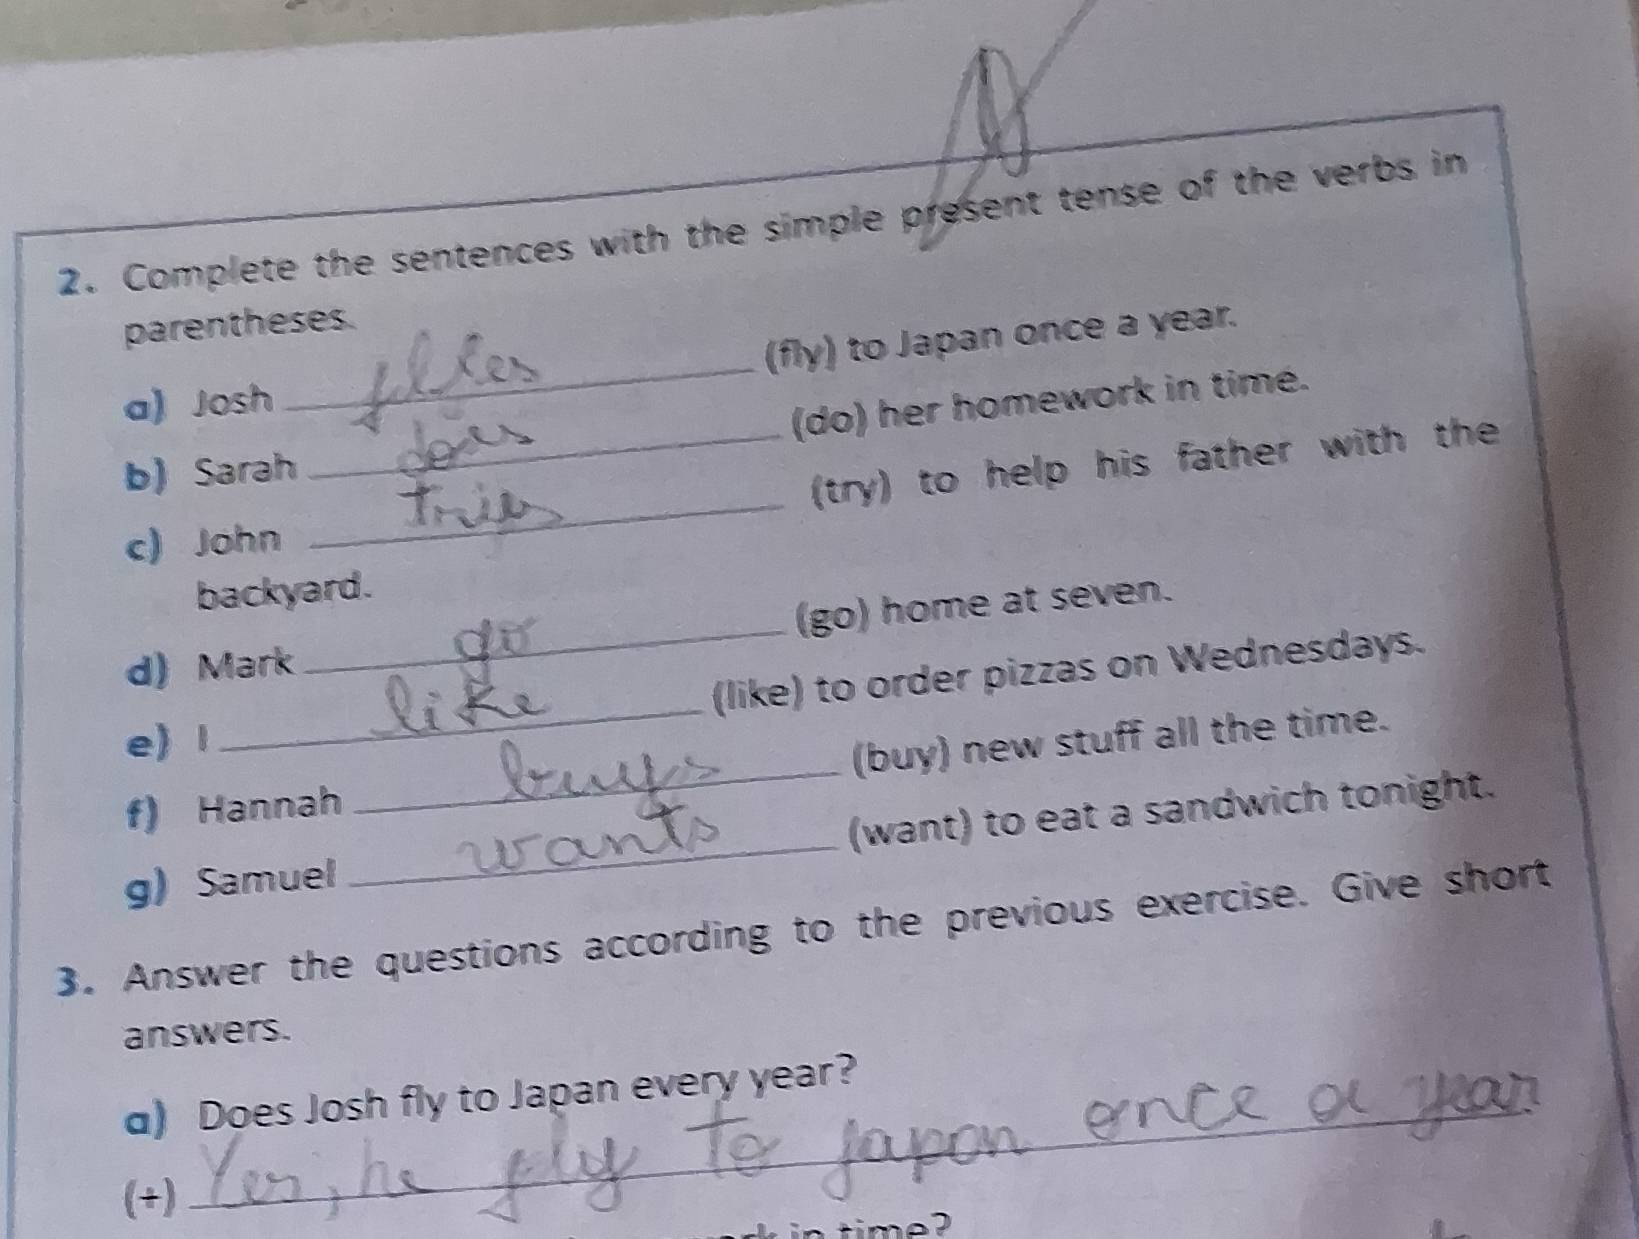 2. Complete the sentences with the simple present tense of the verbs in
parentheses.
a) Josh flies (fly) to Japan once a year.
b) Sarah does (do) her homework in time.
c) John tries (try) to help his father with the
backyard.
d) Mark go (go) home at seven.
e) I like (like) to order pizzas on Wednesdays.
f) Hannah buys (buy) new stuff all the time.
g) Samuel wants (want) to eat a sandwich tonight.
3. Answer the questions according to the previous exercise. Give short
answers.
a) Does Josh fly to Japan every year?
(+) Yes, he fly to japon once a year
in time?